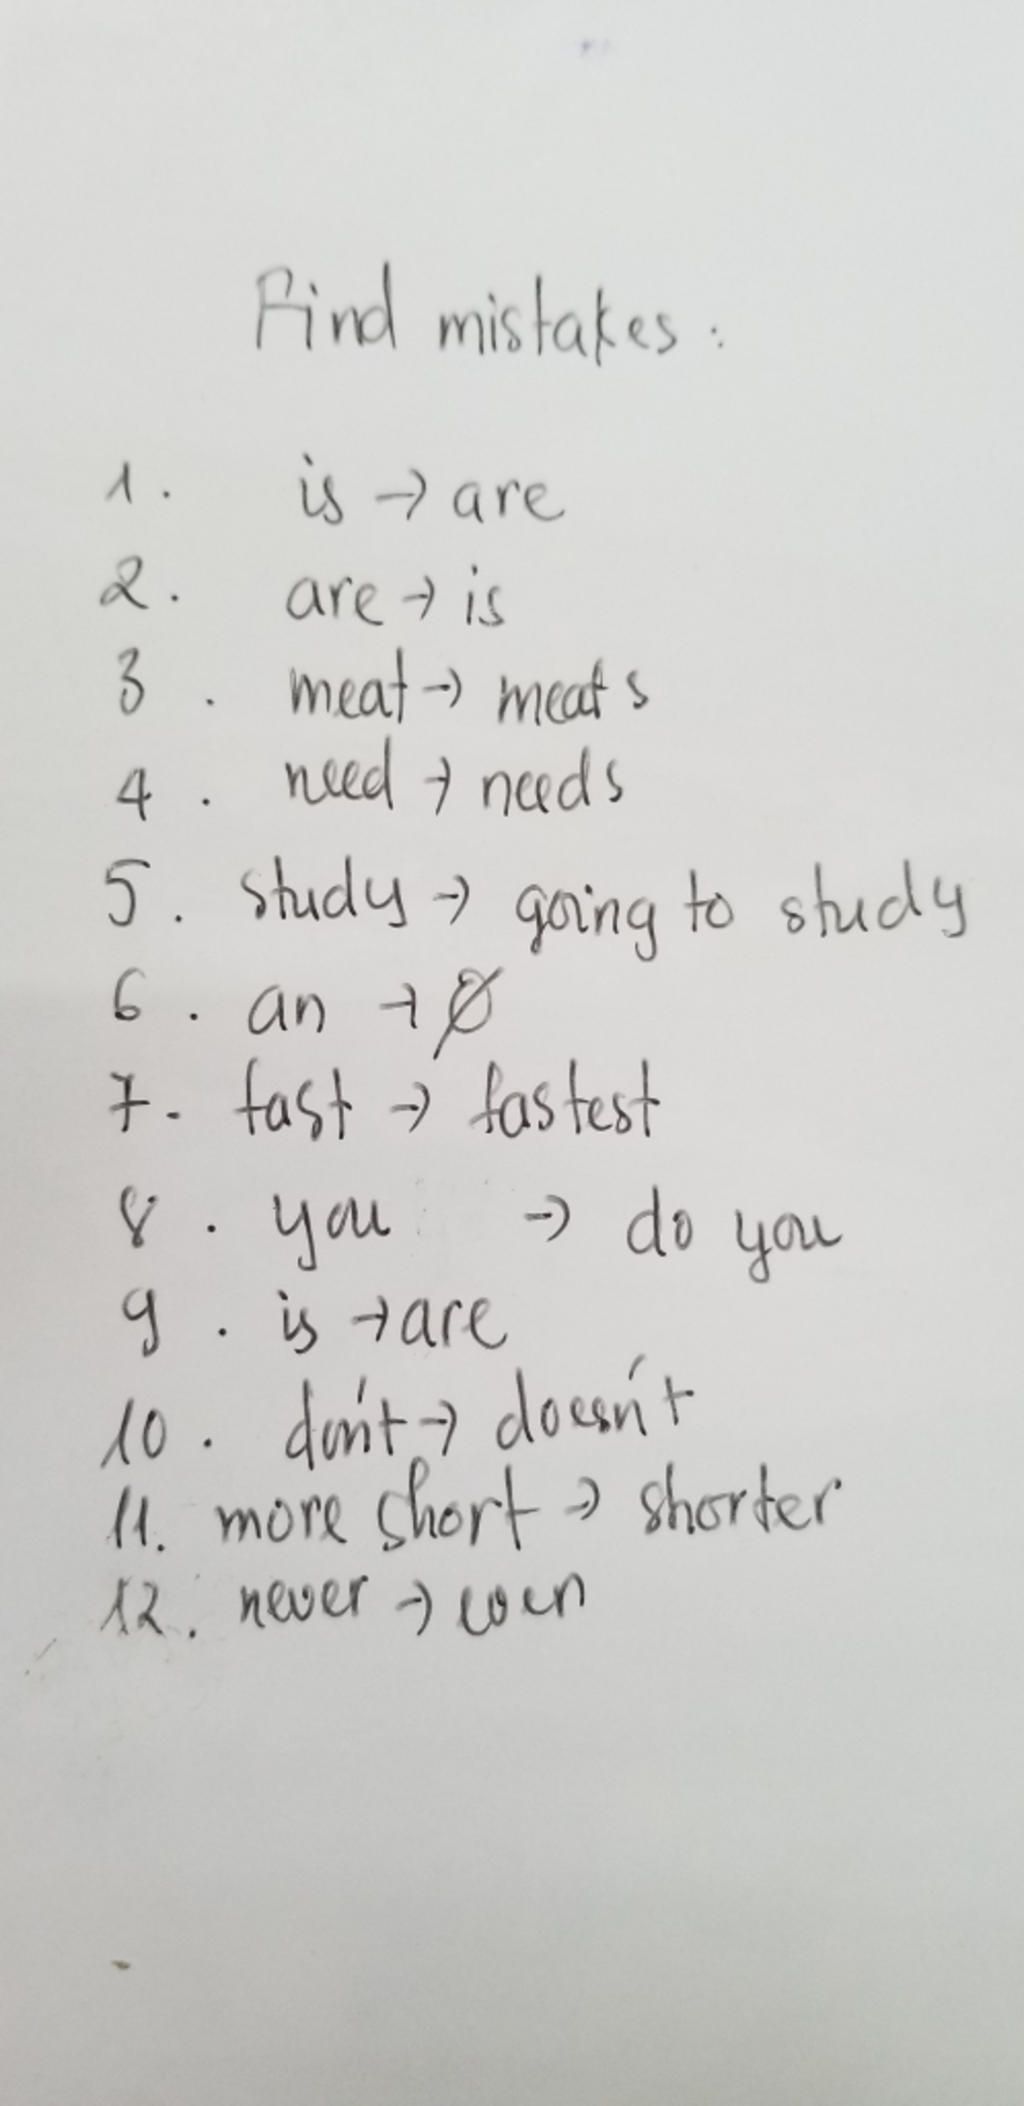 Find mistakes:
1. is → are
2. are → is
3. meat → meats
4. need → needs
5. study → going to study
6. an → Ø
7. fast → fastest
8. you → do you
9. is → are
10. don't → doesn't
11. more short → shorter
12. never →